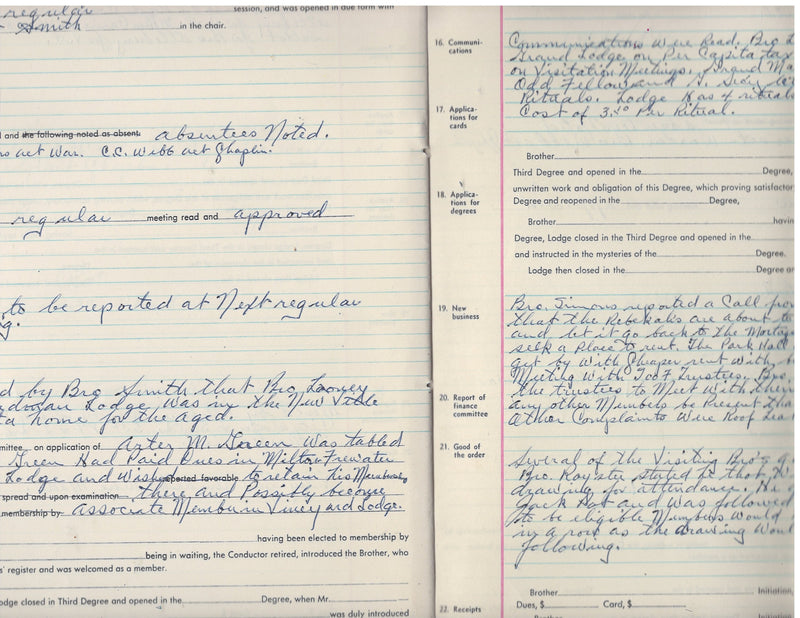 session, and was opened in due form with
regular
Smith in the chair.
d and the following noted as absent: absentees Noted.
act War. C.C. Webb act Chaplin.
regular meeting read and approved
to be reported at Next regular
g.
d by Bro Smith that Bro Looney
Lodge was in the New
a home for the aged.
mittee on application of Azter M. Green was tabled
Green Had Paid Dues in Milton Frewater
Lodge and Wished reported favorable to retain his Membership
spread and upon examination there and Possibly become
membership by associate Member in Vineyard Lodge.
having been elected to membership by
being in waiting, the Conductor retired, introduced the Brother, who
s' register and was welcomed as a member.
odge closed in Third Degree and opened in the Degree, when Mr.
was duly introduced
16. Communi-
cations
Communications Were Read. Bro
Grand Lodge on Per Capita tax
on Visitation Meetings. Grand Ma
Odd Fellow and
Rituals. Lodge Has 4 rituals
Cost of 3.50 Per Ritual.
17. Applica-
tions for
cards
Brother
Third Degree and opened in the Degree,
unwritten work and obligation of this Degree, which proving satisfactor
Degree and reopened in the Degree,
18. Applica-
tions for
degrees
Brother havin
Degree, Lodge closed in the Third Degree and opened in the
and instructed in the mysteries of the Degree.
Lodge then closed in the Degree or
19. New
business
Bro. Simons reported a Call from
that the Rebekahs are about to
and let it go back to the Mortga
seek a Place to rent. The Park Hall
get by With Cheaper rent With
Meeting With IOOF Trustees. Bro.
the trustees to Meet With them
any other Members be Present tha
20. Report of
finance
committee
other Complaints Were Roof Lea
21. Good of
the order
Several of the Visiting Bro's g
Bro. Royster stated he that
drawing for attendance. He
Jack Pot and Was followed
to be eligible Members Would
in a row as the drawing Woul
following.
Brother Initiation,
Dues, $ Card, $
22. Receipts
Brother Initiation